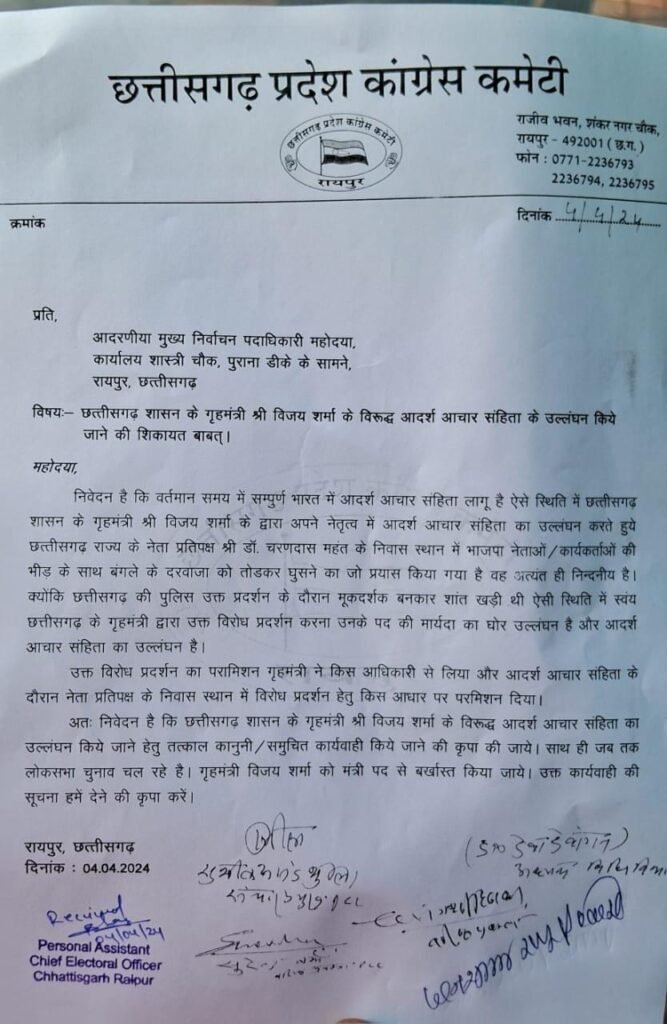 छत्तीसगढ़ प्रदेश कांग्रेस कमेटी
छत्तीसगढ़ प्रदेश कांग्रेस कमेटी
रायपुर
राजीव भवन, शंकर नगर चौक,
रायपुर - 492001 ( छ.ग. )
फोन : 0771-2236793
2236794, 2236795
क्रमांक
दिनांक 4/4/24
प्रति,
आदरणीया मुख्य निर्वाचन पदाधिकारी महोदया,
कार्यालय शास्त्री चौक, पुराना डीके के सामने,
रायपुर, छत्तीसगढ़
विषयः– छत्तीसगढ़ शासन के गृहमंत्री श्री विजय शर्मा के विरूद्ध आदर्श आचार संहिता के उल्लंघन किये
जाने की शिकायत बाबत्।
महोदया,
निवेदन है कि वर्तमान समय में सम्पुर्ण भारत में आदर्श आचार संहिता लागू है ऐसे स्थिति में छत्तीसगढ़
शासन के गृहमंत्री श्री विजय शर्मा के द्वारा अपने नेतृत्व में आदर्श आचार संहिता का उल्लंघन करते हुये
छत्तीसगढ़ राज्य के नेता प्रतिपक्ष श्री डॉ. चरणदास महंत के निवास स्थान में भाजपा नेताओं/कार्यकर्ताओं की
भीड़ के साथ बंगले के दरवाजा को तोडकर घुसने का जो प्रयास किया गया है वह अत्यंत ही निन्दनीय है।
क्योंकि छत्तीसगढ़ की पुलिस उक्त प्रदर्शन के दौरान मूकदर्शक बनकार शांत खड़ी थी ऐसी स्थिति में स्वंय
छत्तीसगढ़ के गृहमंत्री द्वारा उक्त विरोध प्रदर्शन करना उनके पद की मार्यदा का घोर उल्लंघन है और आदर्श
आचार संहिता का उल्लंघन है।
उक्त विरोध प्रदर्शन का परामिशन गृहमंत्री ने किस आधिकारी से लिया और आदर्श आचार संहिता के
दौरान नेता प्रतिपक्ष के निवास स्थान में विरोध प्रदर्शन हेतु किस आधार पर परमिशन दिया।
अतः निवेदन है कि छत्तीसगढ़ शासन के गृहमंत्री श्री विजय शर्मा के विरूद्ध आदर्श आचार संहिता का
उल्लंघन किये जाने हेतु तत्काल कानुनी/समुचित कार्यवाही किये जाने की कृपा की जाये। साथ ही जब तक
लोकसभा चुनाव चल रहे है। गृहमंत्री विजय शर्मा को मंत्री पद से बर्खास्त किया जाये। उक्त कार्यवाही की
सूचना हमें देने की कृपा करें।
रायपुर, छत्तीसगढ़
दिनांक : 04.04.2024
Received
04/04/24
Personal Assistant
Chief Electoral Officer
Chhattisgarh Raipur